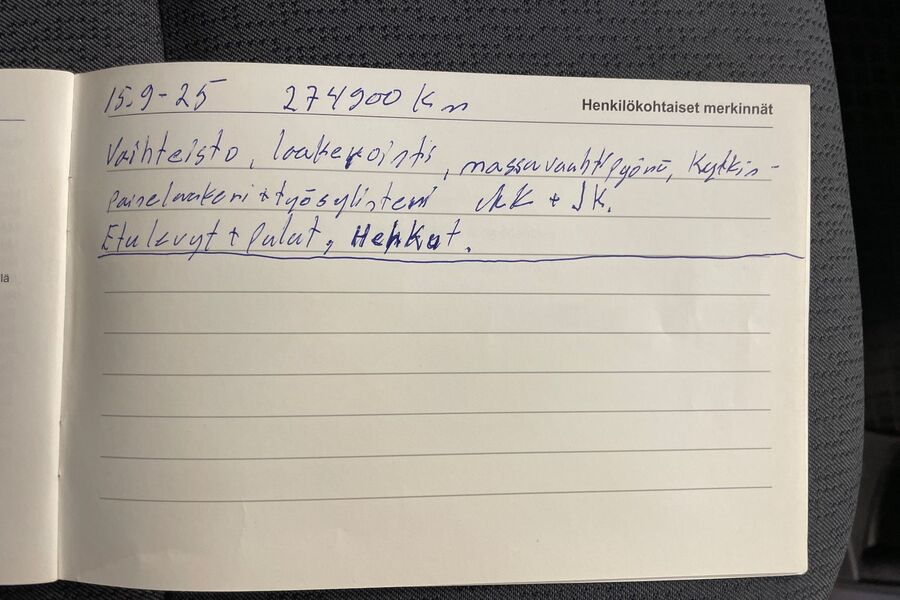 Henkilökohtaiset merkinnät
15.9-25 274900 Km
Vaihteisto, laakerointi, massavauhtipyörä, Kytkin-
painelaakeri + työsylinteri + JK.
Etulevyt + palat, Hehkut.
lä